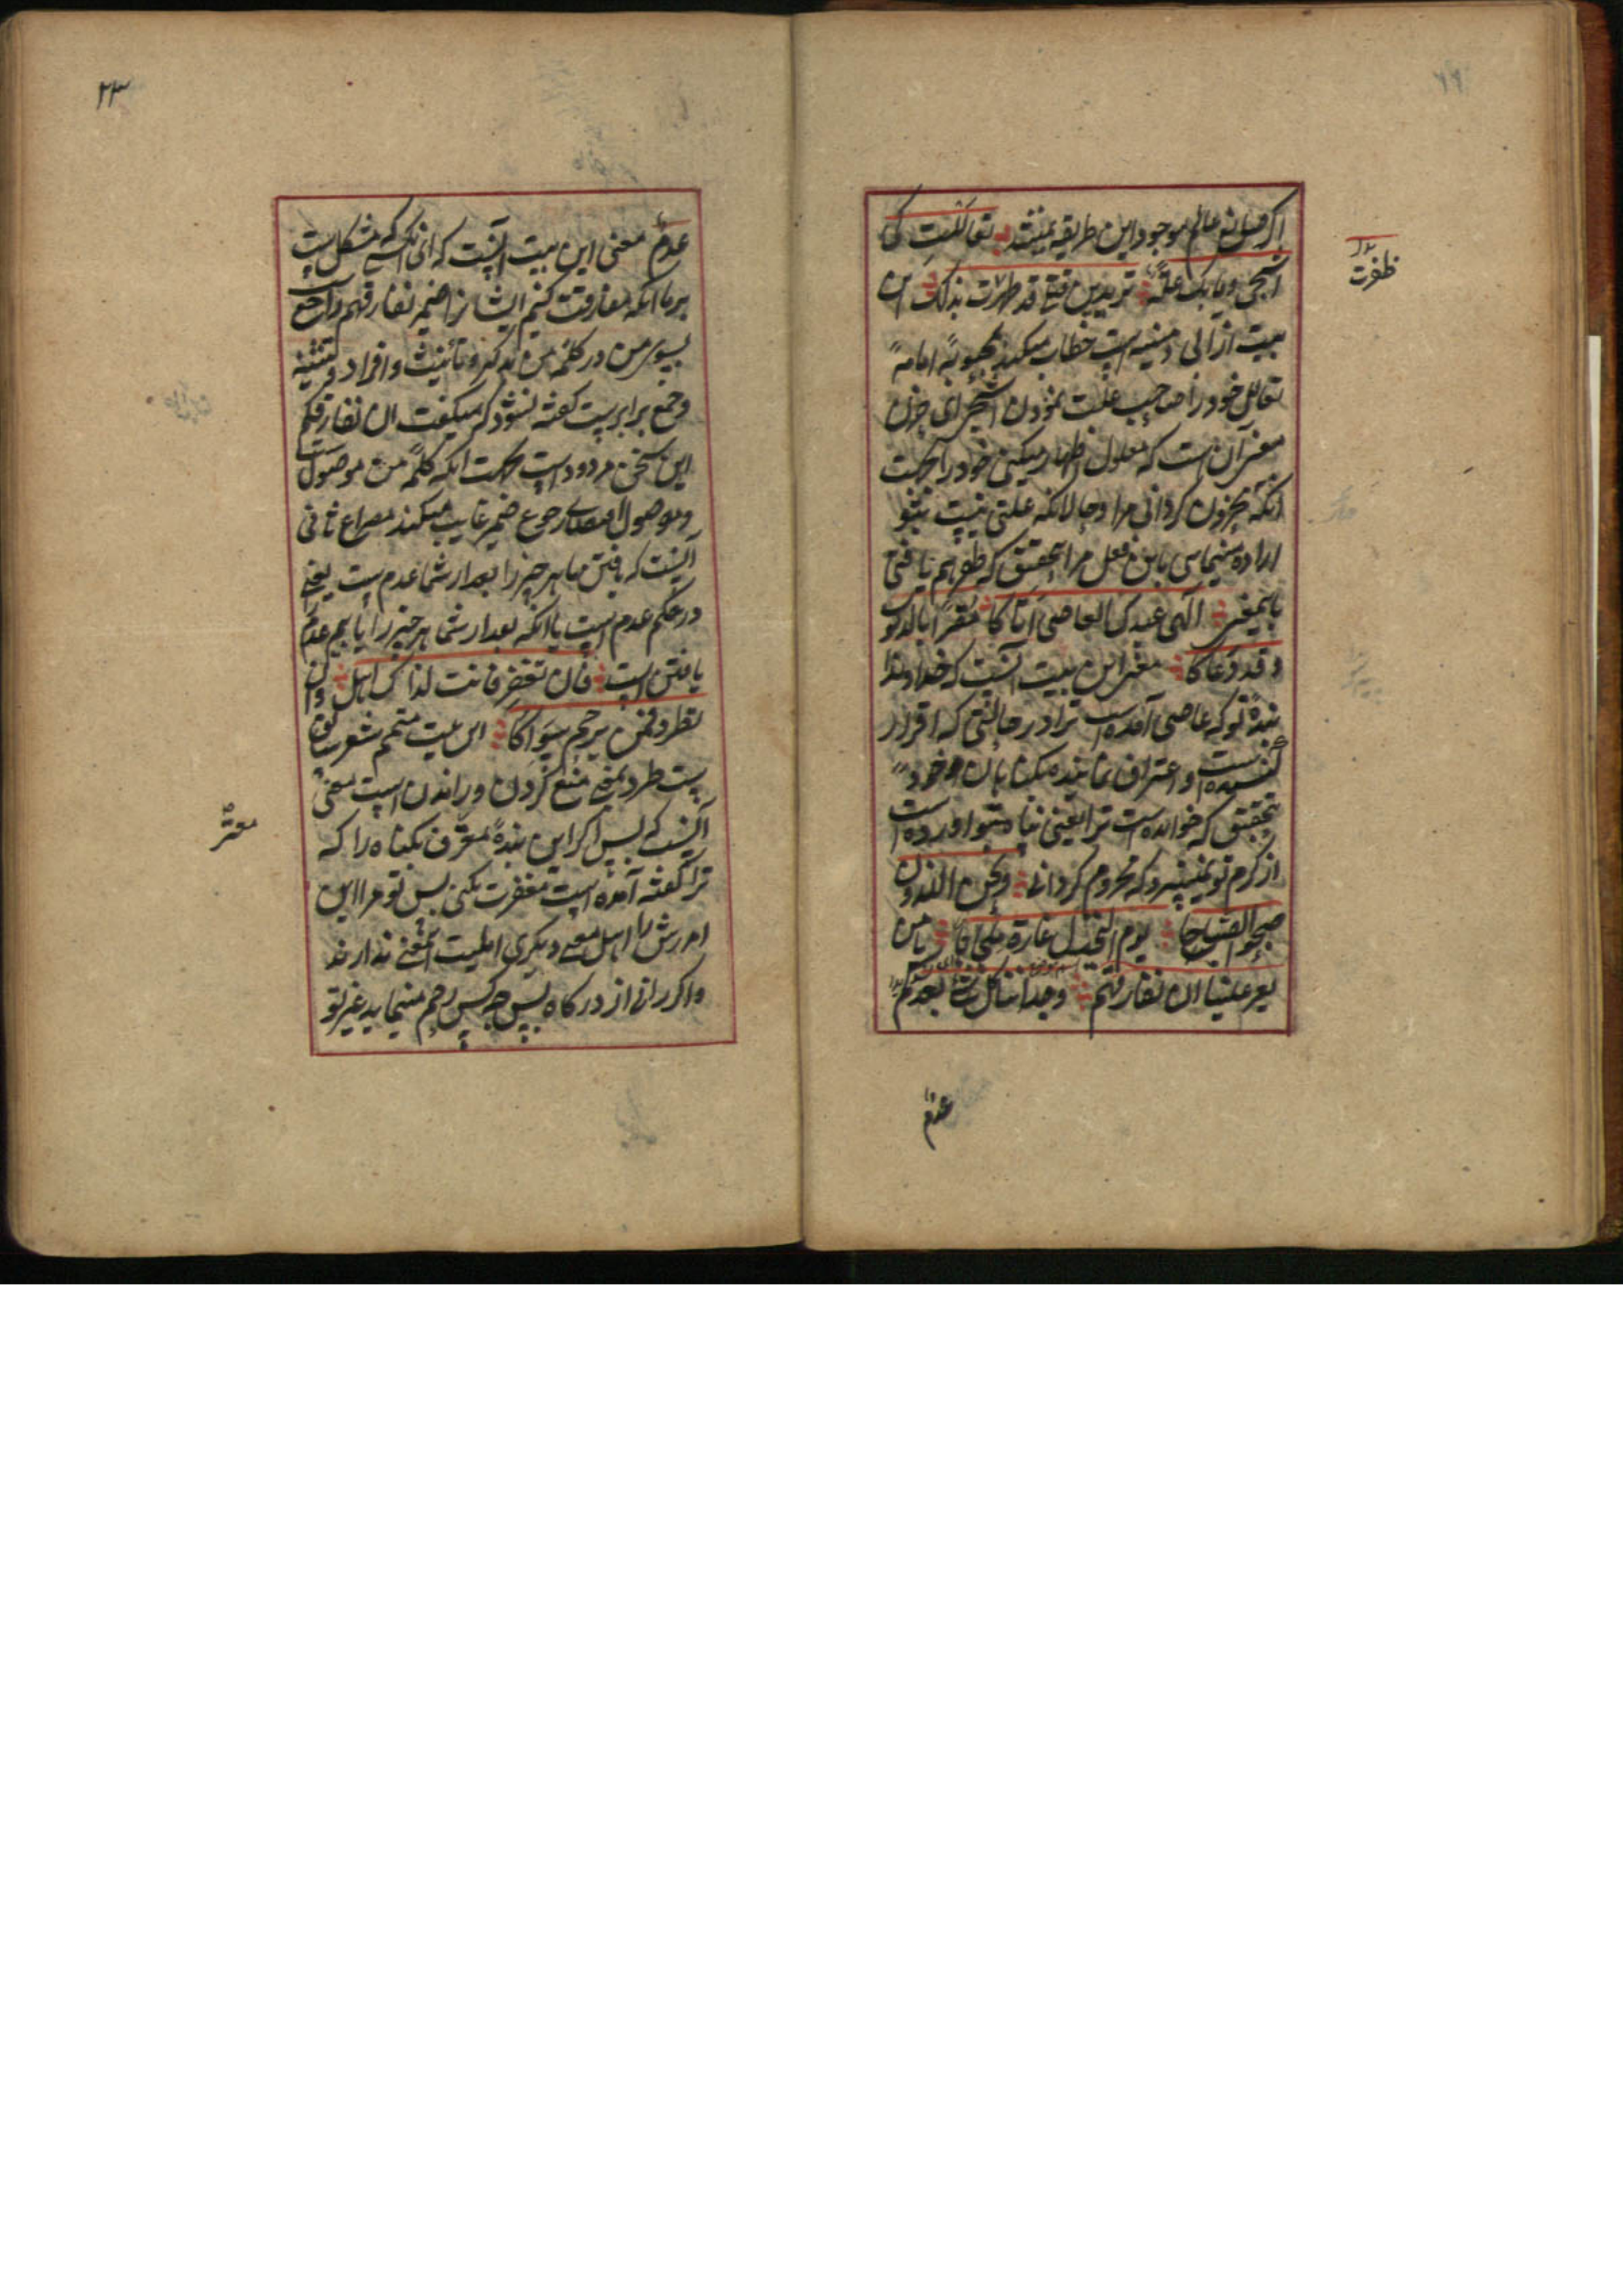 اکر قبل تو عالم موجود این طریقه نمیشد تعاللت کی
اشجی و ما بک علة تریدین قتلی قد ظهرت بذلک این
بیت از ابی دمنیه است خطاب میکند بمحبوبهٔ امامه
تعالل خود را صاحب علت نمودن اشجی ای حزن
معنی آن است که معلول اظهار میکنی خود را بجهت
انکه محزون کردانی مرا و حالانکه علتی نیست بتو
اراده مینمایی باین فعل مرا بتحقیق که ظفر هم یافتی
باین معنی الهی عبدک العاصی اتاکا مقرا بالذنوب
و قد دعاکا معنی این بیت آنست که خداوندا
بندهٔ تو که عاصی آمده است ترا در حالتی که اقرار
کننده است و اعتراف نماینده بکناهان خود
بتحقیق که خوانده است ترا یعنی پناه بتو اورده است
از کرم تو نمیسزد که محروم کردانی و نحن اللذون
صبحوا الصباحا یوم النخیل غارة ملحاحا یا من
یعز علینا ان نفارقهم وجداننا کل شئ بعدکم
عدم
ظفرت
۲۳
عدم معنی این بیت آنست که ای انکسی که مشکل است
بر ما انکه مفارقت کنیم ایشانرا ضمیر نفارقهم راجع است
بسوی من در کلمه من تذکیر و تأنیث و افراد و تثنیه
و جمع برابر است کفته نشود که میکفت ان نفارقکم
این سخن مردود است بجهت انکه کلمه من موصول است
و موصول اقتضای رجوع ضمیر غایب میکند مصراع ثانی
آنست که یافتن ما هر چیز را بعد از شما عدم است یعنی
در حکم عدم است یا انکه بعد از شما هر چیز را یابیم عدم
یافتن است فان تغفر فانت لذاک اهل و ان
تطرد فمن یرحم سواکا این بیت متمم شعر سابق
است طرد بمعنی منع کردن و راندن است معنی
آنست که پس اکر این بندهٔ معترف بکناه را که
ترا کفته آمده است مغفرت بکنی پس تو مر این
امرزش را اهل دیکری اهلیت اینمعنی ندارند
و اکر رانی از درکاه پس چه کس رحم مینماید غیر تو
معتر